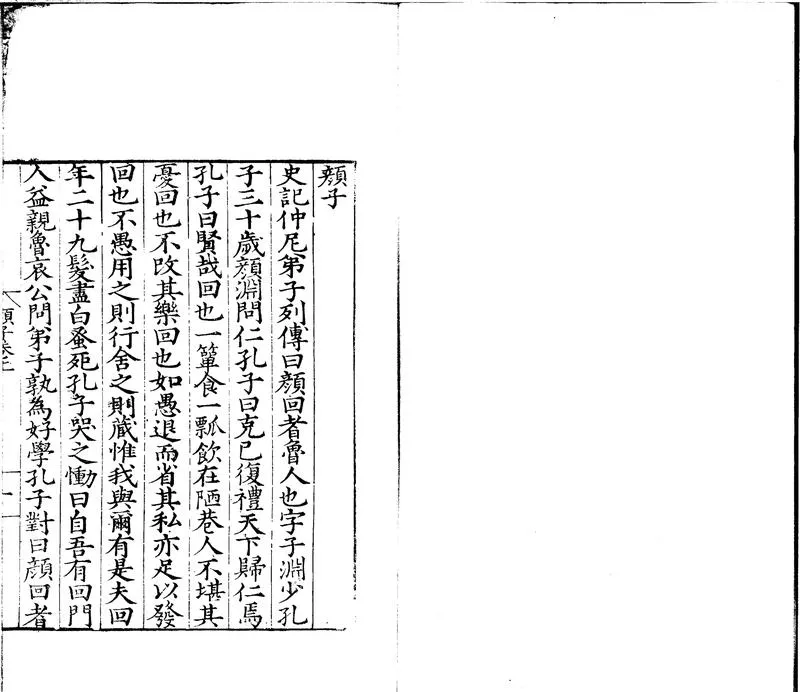 顏子
史記仲尼弟子列傳曰顏回者魯人也字子淵少孔
子三十歲顏淵問仁孔子曰克己復禮天下歸仁焉
孔子曰賢哉回也一簞食一瓢飲在陋巷人不堪其
憂回也不改其樂回也如愚退而省其私亦足以發
回也不愚用之則行舍之則藏惟我與爾有是夫回
年二十九髮盡白蚤死孔子哭之慟曰自吾有回門
人益親魯哀公問弟子孰為好學孔子對曰顏回者
顏子卷上
一